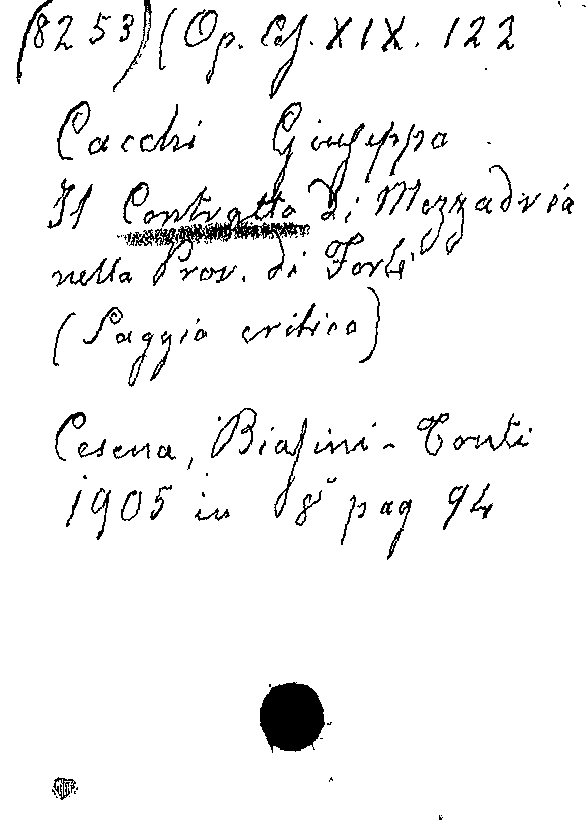 (8253) (Op. Cf. XIX. 122
Cacchi Giuseppe
Il Contratto di Mezzadria
nella Prov. di Forlì
(Saggio critico)
Cesena, Biasini-Tonti
1905 in 8° pag 94